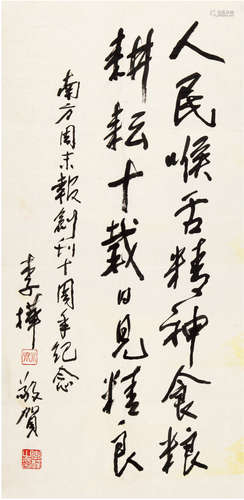 人民喉舌精神食粮
耕耘十载日见精良
南方周末報創刊十周年纪念
李樺
敬賀